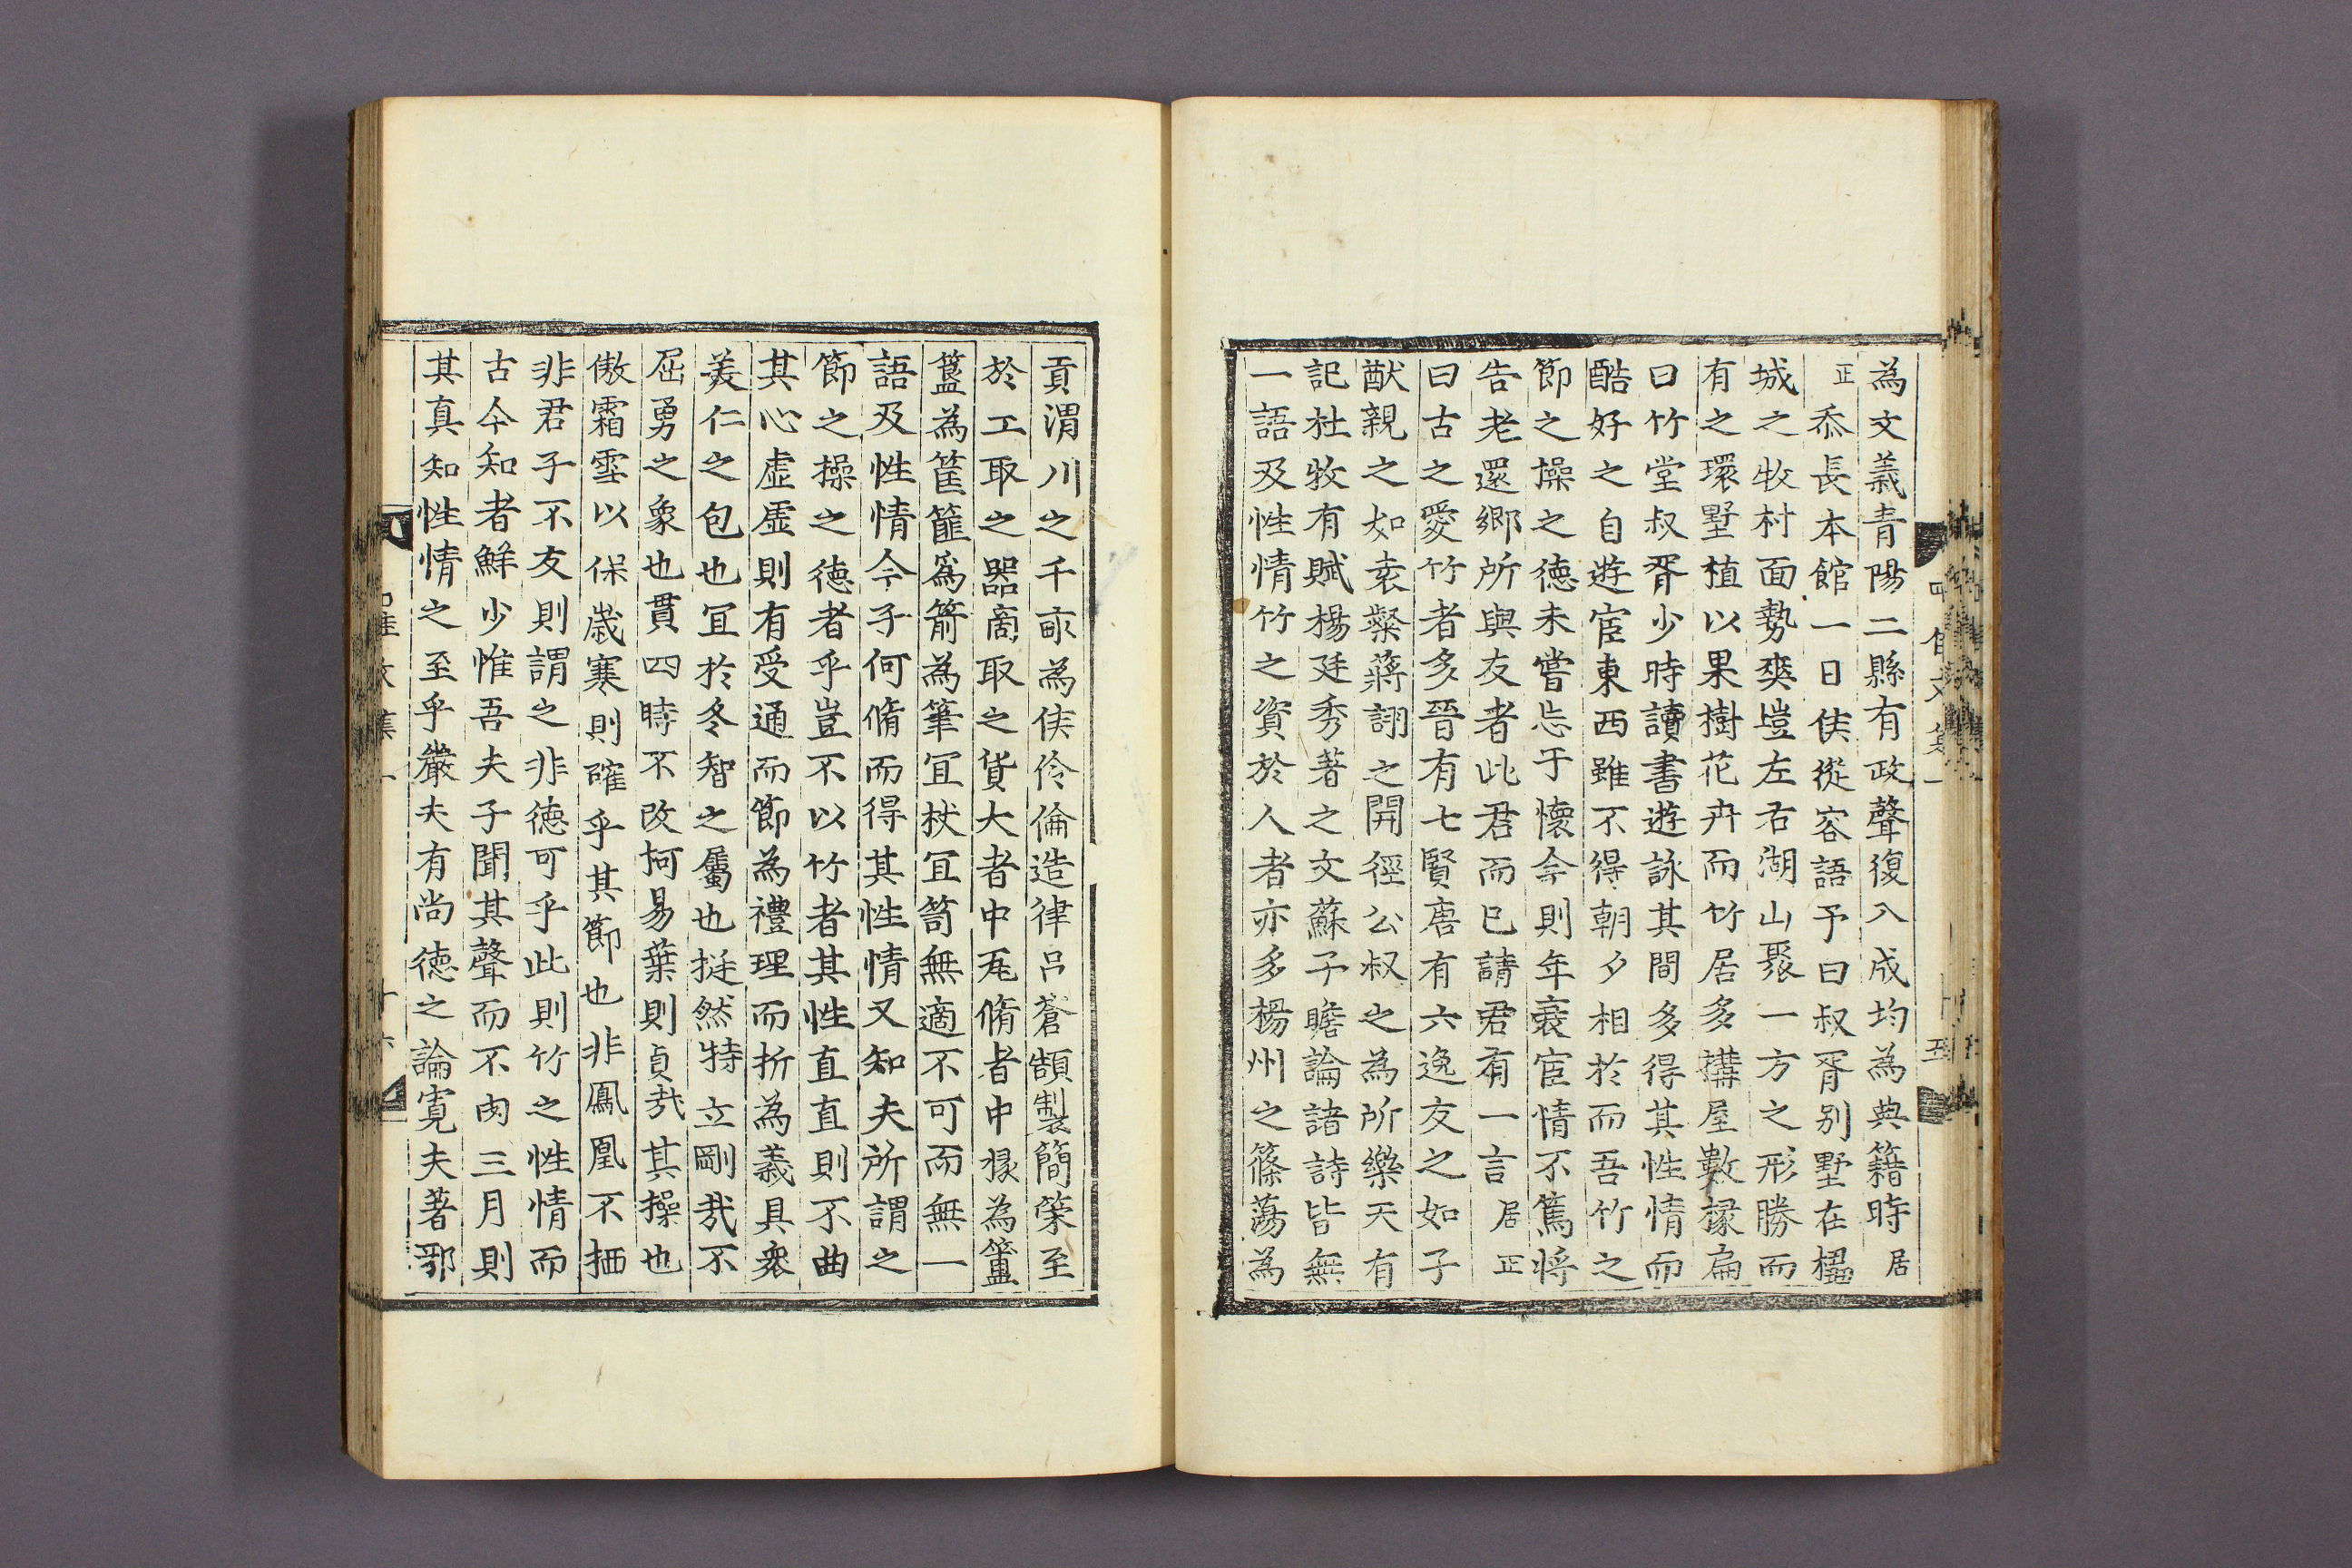 為文義青陽二縣有政聲復入成均為典籍時居
正忝長本館一日侯從容語予曰叔胥别墅在楊
城之牧村面勢爽塏左右湖山聚一方之形勝而
有之環墅植以果樹花卉而竹居多搆屋數椽扁
曰竹堂叔胥少時讀書遊詠其間多得其性情而
酷好之自遊宦東西雖不得朝夕相於而吾竹之
節之操之德未嘗忘于懷今則年衰宦情不篤將
告老還鄉所與友者此君而已請君有一言居正
曰古之愛竹者多晉有七賢唐有六逸友之如子
猷親之如袁粲蔣詡之開徑公叔之為所樂天有
記杜牧有賦楊廷秀著之文蘇子瞻論諸詩皆無
一語及性情竹之資於人者亦多楊州之篠蕩為
四佳文集一
十五
貢渭川之千畝為侯伶倫造律呂蒼頡製簡策至
於工取之器啇取之貨大者中㼽脩者中椽為簠
簋為筐篚為箭為筆宜杖宜笥無適不可而無一
語及性情今子何脩而得其性情又知夫所謂之
節之操之德者乎豈不以竹者其性直直則不曲
其心虛虛則有受通而節為禮理而折為義具衆
美仁之包也宜於冬智之屬也挺然特立剛哉不
屈勇之象也貫四時不改柯易葉則貞哉其操也
傲霜雪以保歲寒則確乎其節也非鳳凰不栖
非君子不友則謂之非德可乎此則竹之性情而
古今知者鮮少惟吾夫子聞其聲而不肉三月則
其真知性情之至乎嚴夫有尚德之論寬夫著邪